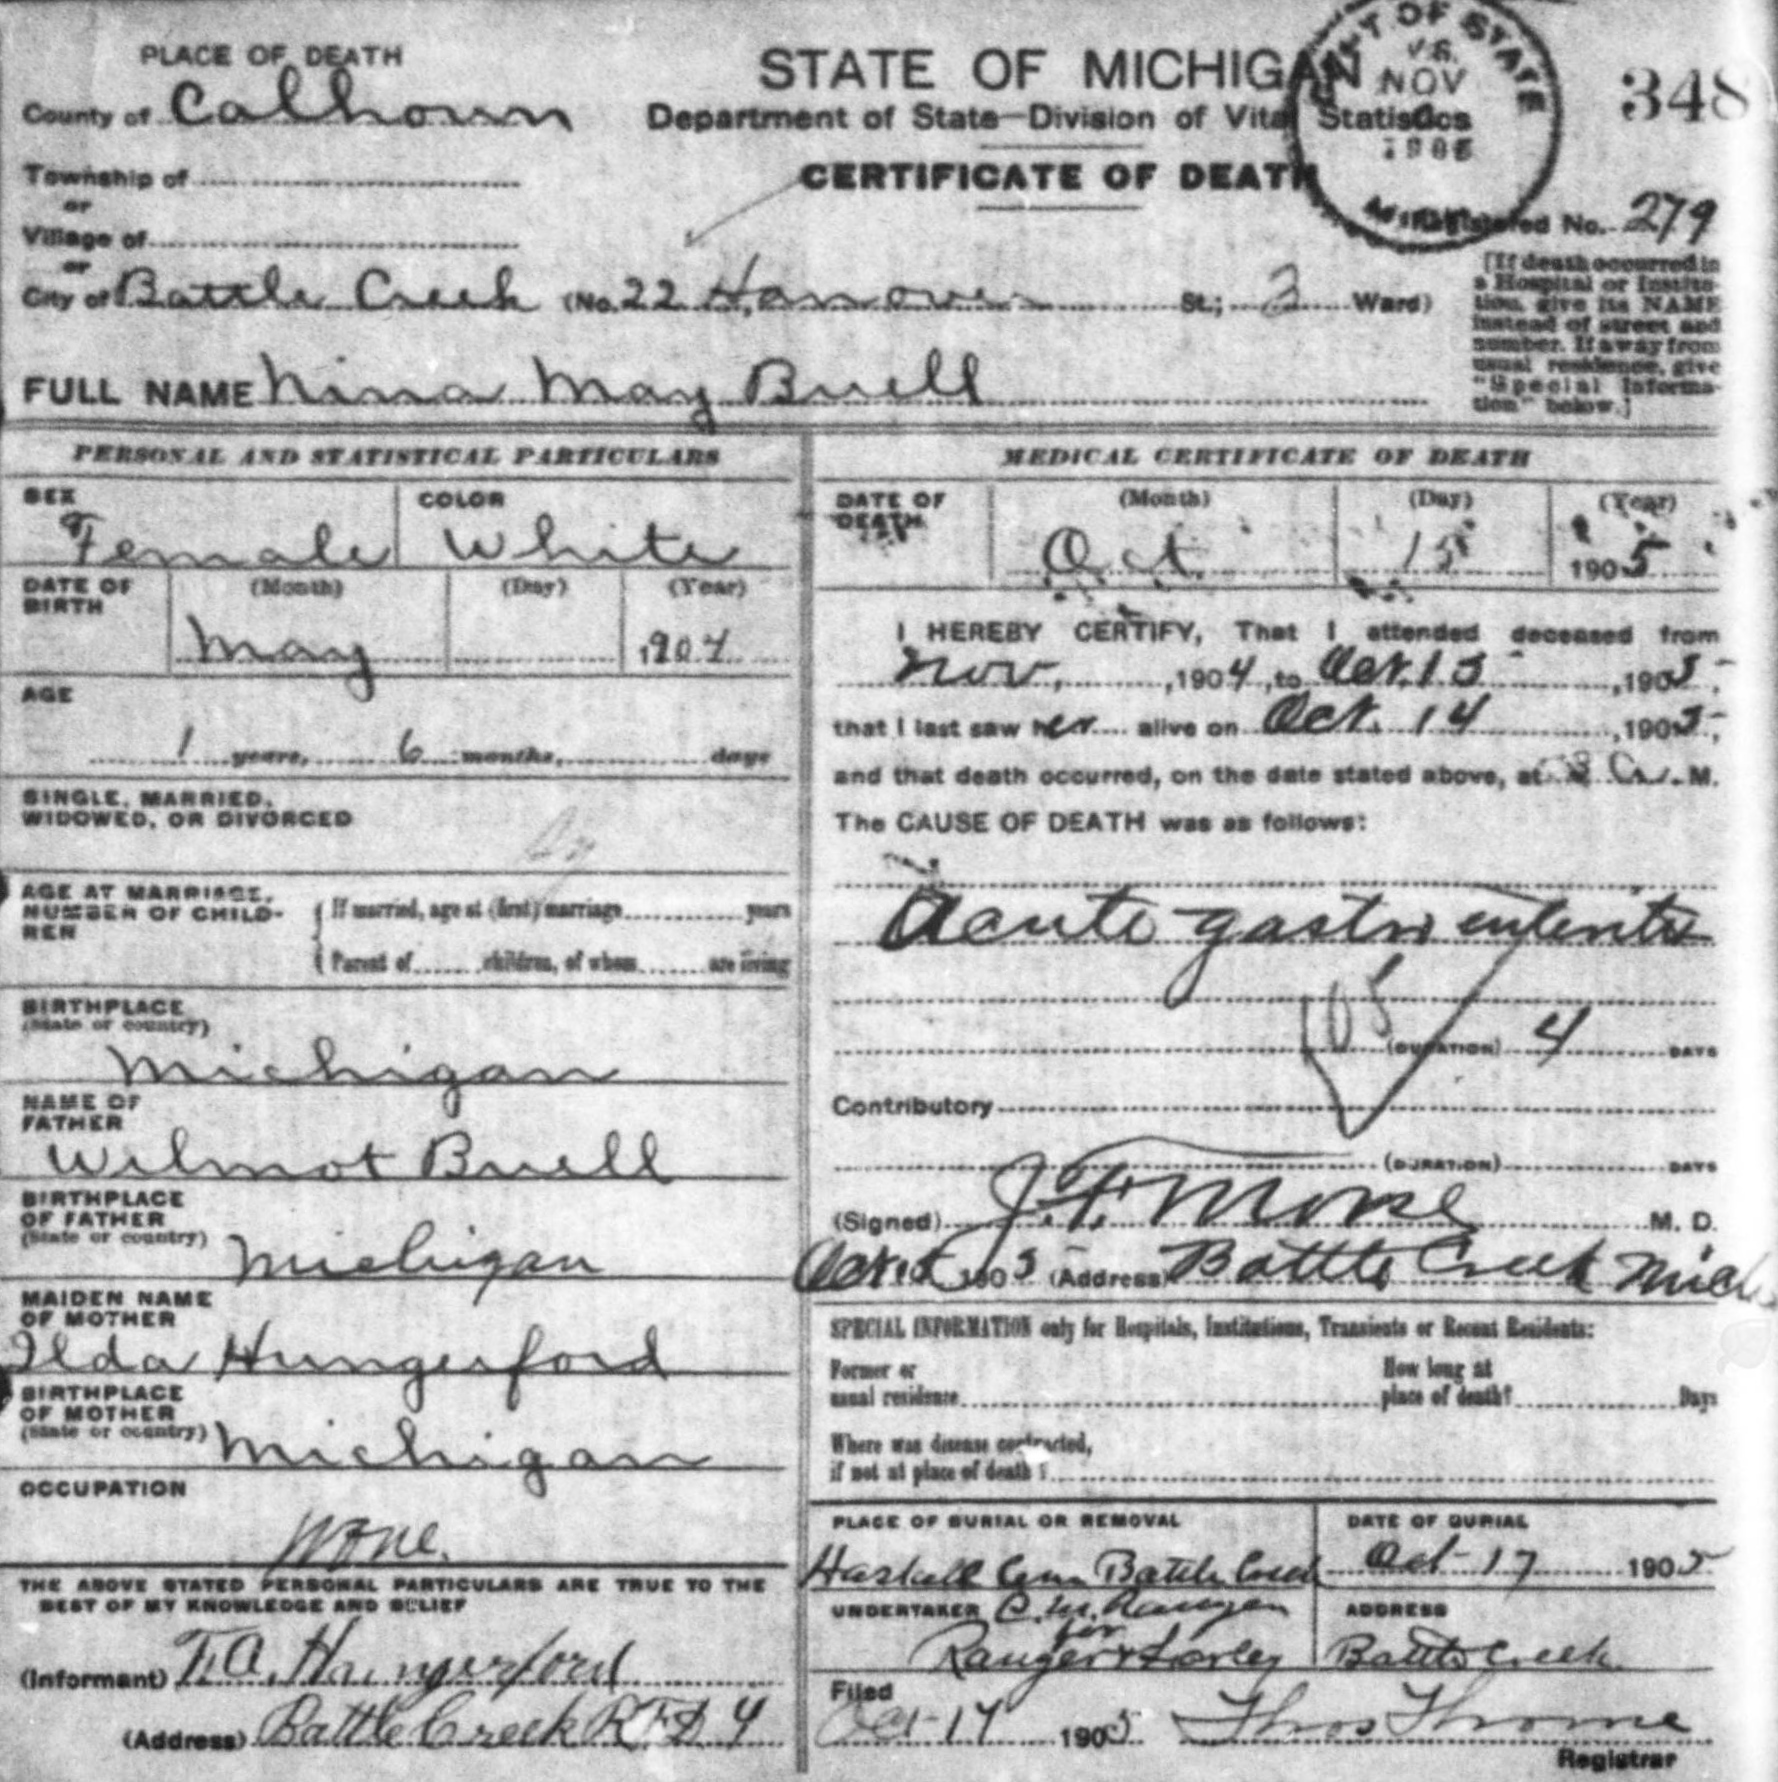 PLACE OF DEATH
County of Calhoun
Township of
or
Village of
or
City of Battle Creek (No. 22 Hanover St.; 3 Ward)
STATE OF MICHIGAN
Department of State—Division of Vital Statistics
CERTIFICATE OF DEATH
DEP'T OF STATE
V.S.
NOV
348
Registered No. 279
[If death occurred in
a Hospital or Institu-
tion, give its NAME
instead of street and
number. If away from
usual residence, give
"Special Informa-
tion" below.]
FULL NAME Nina May Buell
PERSONAL AND STATISTICAL PARTICULARS
SEX
Female
COLOR
White
DATE OF
BIRTH
(Month) (Day) (Year)
May 1904
AGE
1 years, 6 months, days
SINGLE, MARRIED,
WIDOWED, OR DIVORCED
AGE AT MARRIAGE,
NUMBER OF CHILD-
REN
If married, age at (first) marriage years
Parent of children, of whom are living
BIRTHPLACE
(State or country)
Michigan
NAME OF
FATHER
Wilmot Buell
BIRTHPLACE
OF FATHER
(State or country)
Michigan
MAIDEN NAME
OF MOTHER
Ilda Hungerford
BIRTHPLACE
OF MOTHER
(State or country)
Michigan
OCCUPATION
None.
THE ABOVE STATED PERSONAL PARTICULARS ARE TRUE TO THE
BEST OF MY KNOWLEDGE AND BELIEF
(Informant) F.A. Hungerford
(Address) Battle Creek R.F.D. 4
MEDICAL CERTIFICATE OF DEATH
DATE OF
DEATH
(Month) (Day) (Year)
Oct. 15 1905
I HEREBY CERTIFY, That I attended deceased from
Nov, 1904, to Oct. 15, 1905,
that I last saw her alive on Oct. 14, 1905,
and that death occurred, on the date stated above, at A. M.
The CAUSE OF DEATH was as follows:
Acute gastro enteritis
105
(DURATION) 4 DAYS
Contributory
(DURATION) DAYS
(Signed) J.F. Morse M. D.
Oct. 15 1905 (Address) Battle Creek Mich
SPECIAL INFORMATION only for Hospitals, Institutions, Transients or Recent Residents:
Former or
usual residence
How long at
place of death? Days
Where was disease contracted,
if not at place of death?
PLACE OF BURIAL OR REMOVAL
Haskell Cem Battle Creek
DATE OF BURIAL
Oct 17 1905
UNDERTAKER C.M. Ranger
for
Ranger & Farley
ADDRESS
Battle Creek
Filed
Oct 17 1905 Thos Thorne
Registrar